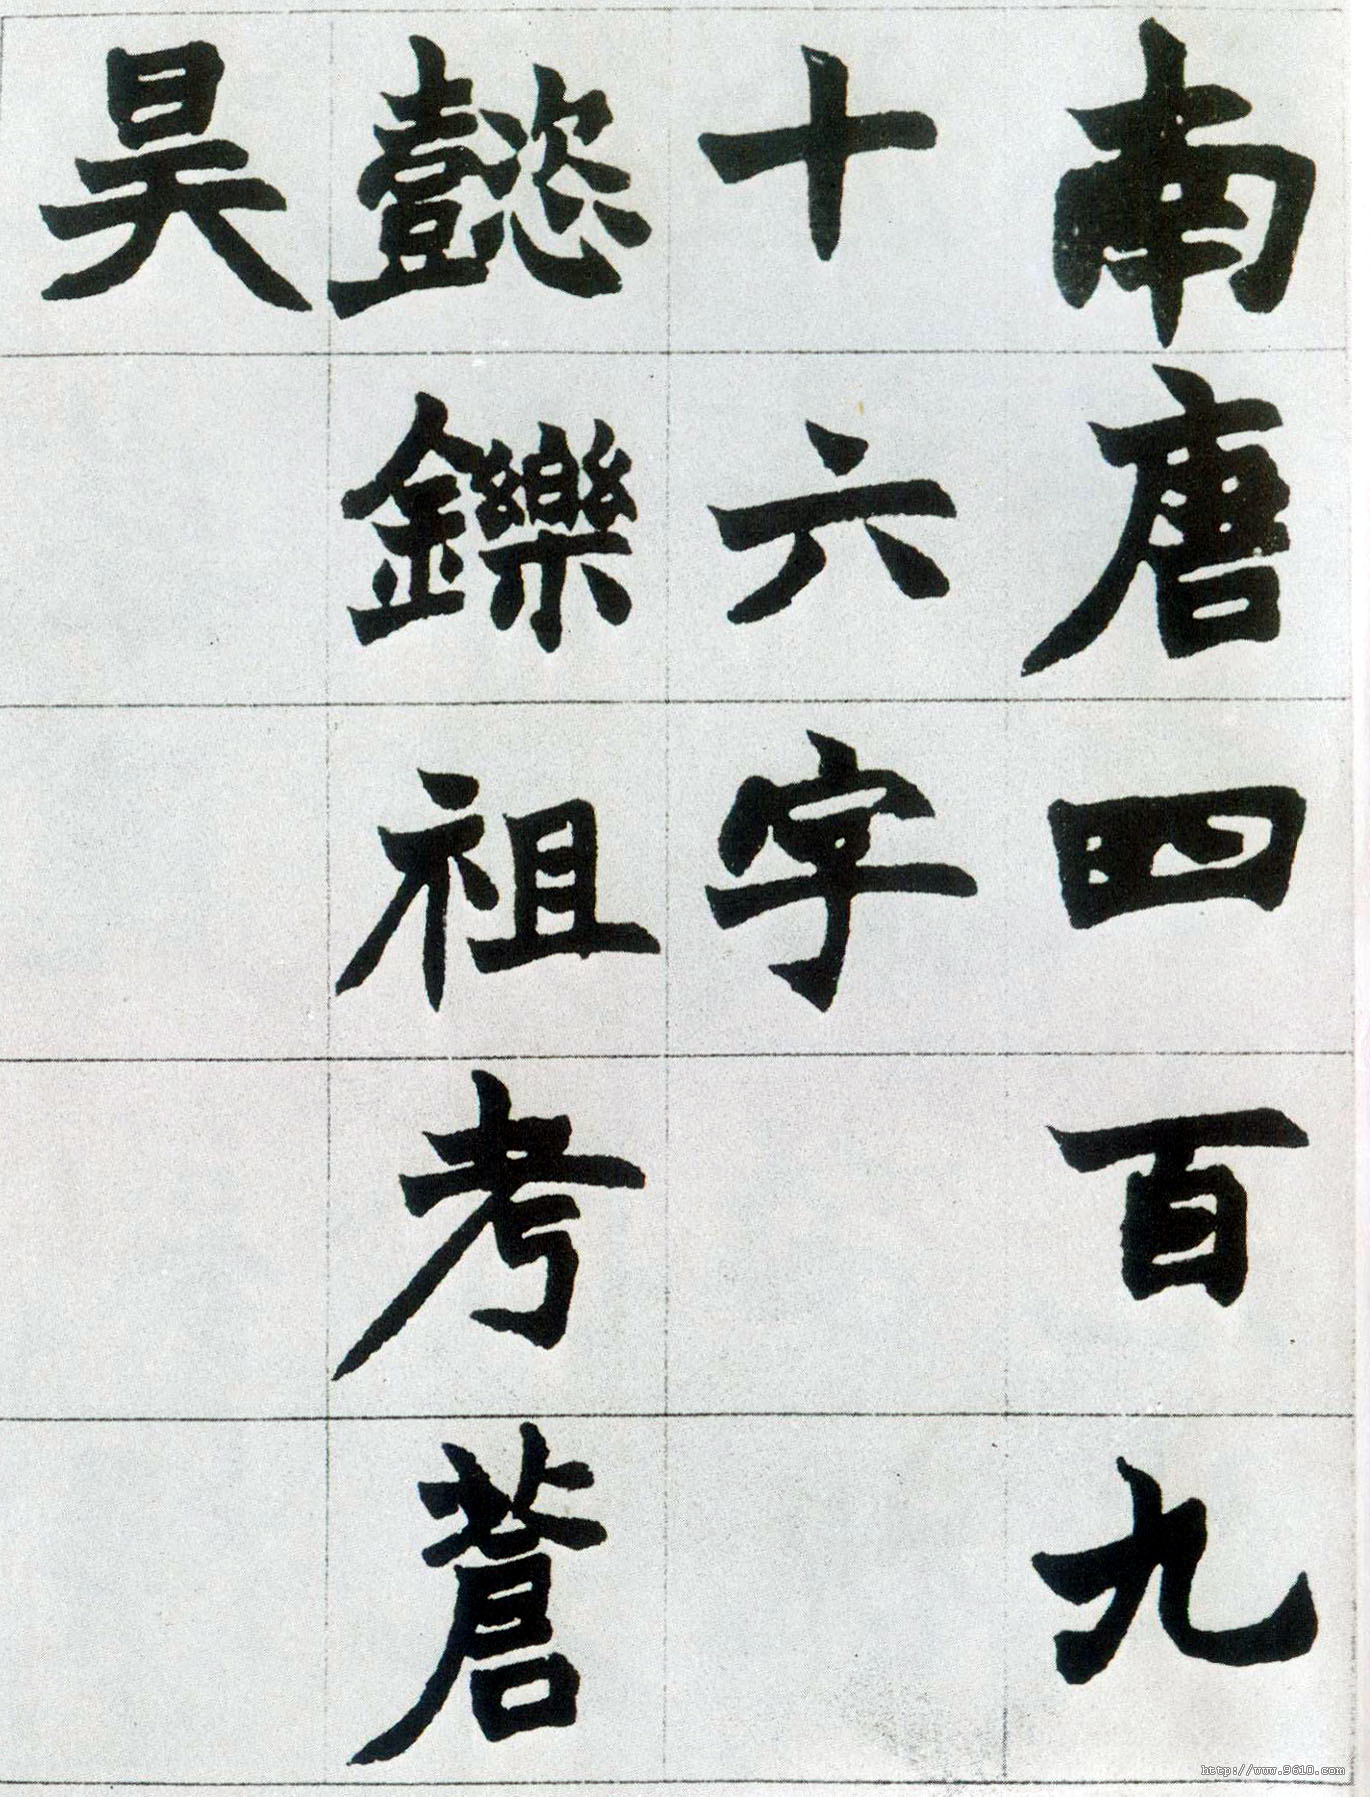 南唐四百九
十六字
懿鑠祖考蒼
昊
http://www.9610.com